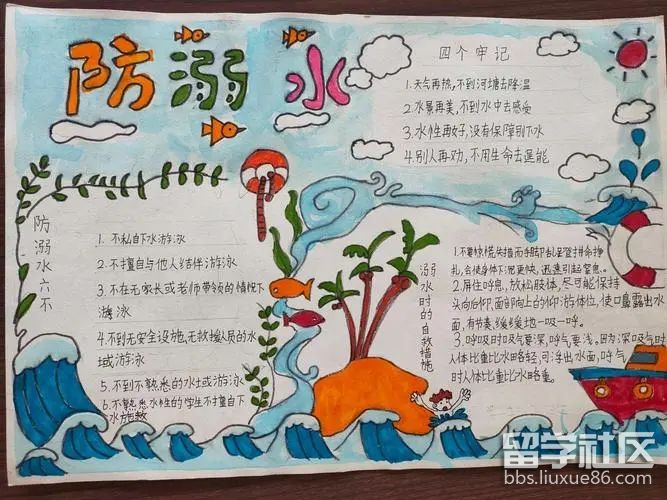 防溺水
四个牢记
1.天气再热,不到河塘去降温
2.水景再美,不到水中去感受
3.水性再好,没有保障别下水
4.别人再劝,不用生命去逞能
防溺水六不
1.不私自下水游泳
2.不擅自与他人结伴游泳
3.不在无家长或老师带领的情况下
游泳
4.不到无安全设施,无救援人员的水
域游泳
5.不到不熟悉的水域游泳
6.不熟悉水性的学生不擅自下
水施救
溺水时的自救措施
1.不要惊慌失措而手脚乱蹬拼命挣
扎,会使身体下沉更快,迅速引起窒息。
2.屏住呼息,放松肢体,尽可能保持
头向后仰,面部向上的仰游体位,使口鼻露出水
面,有节奏,缓缓地一吸一呼。
3.呼吸时吸气要深,呼气要浅。因为深吸气时
人体比重比水略轻,可浮出水面,呼气
时人体比重比水略重。
留学社区
bbs.liuxue86.com